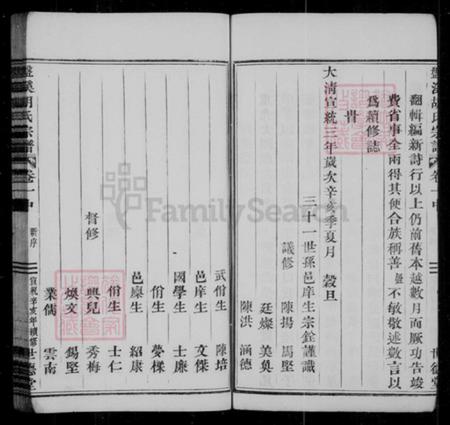 盤溪胡氏宗譜 卷一中
世德堂
翻輯編新詩行以上仍前舊本越數月而厥功告竣
費省事全兩得其便合族稱善 不敏敬述數言以
為續修誌
時
大清宣統三年歲次辛亥季夏月 穀旦
三十一世孫邑庠生宗銓謹識
議修 陳揚 馬堅
廷燦 美奐
陳洪 涵德
武佾生 陳培
邑庠生 文傑
國學生 士廉
佾生 夢樑
邑廩生 紹康
佾生 士仁
督修 興兒 秀梅
煥文 錫堅
業儒 雲南
盤溪胡氏宗譜 卷一中 新序
宣統辛亥年續修 世德堂
FamilySearch